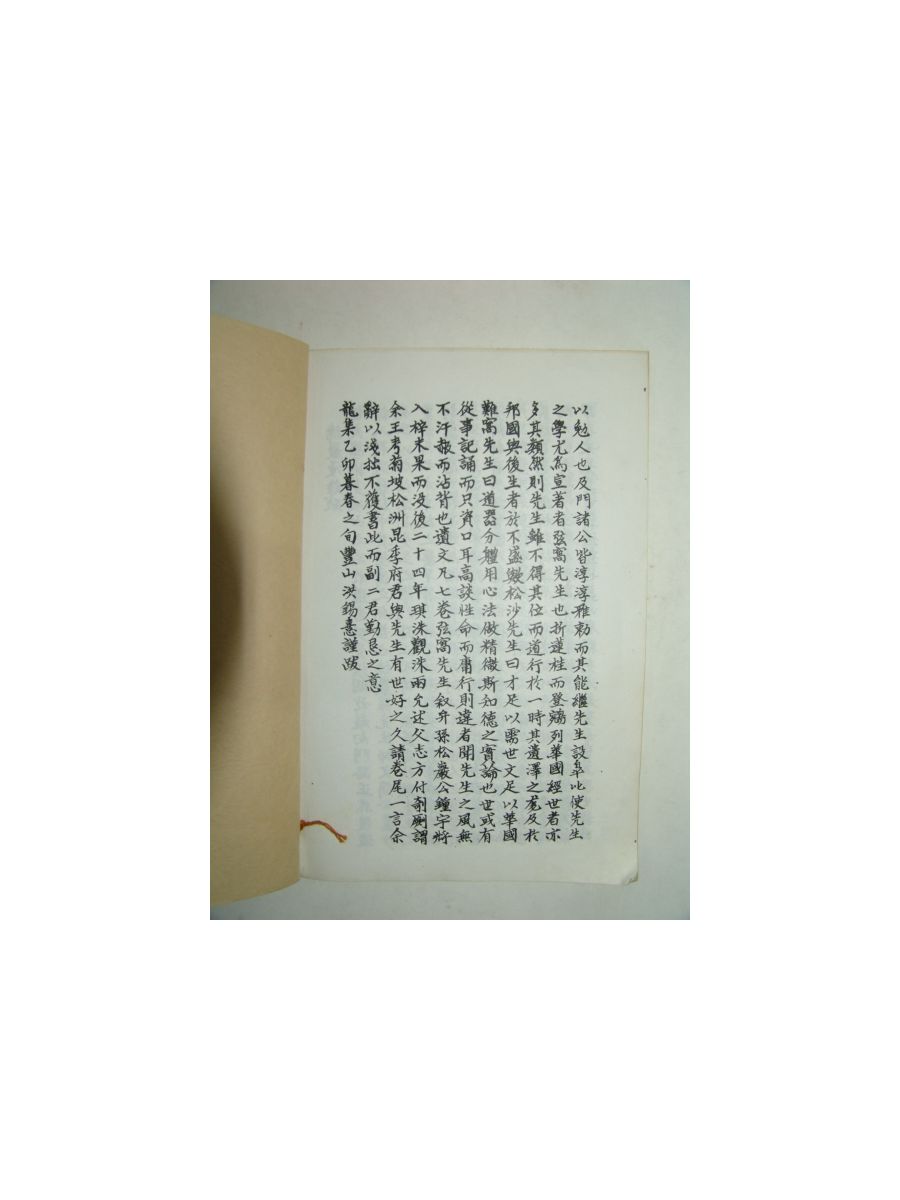 以勉人也及門諸公皆淳淳雅勅而其能繼先生設皐比使先生
之學尤爲宣著者弦窩先生也折蓮桂而登鵷列華國經世者亦
多其類然則先生雖不得其位而道行於一時其遺澤之厖及於
邦國與後生者於不盛歟松沙先生曰才足以需世文足以華國
難窩先生曰道器分軆用心法做精微斯知德之實論也世或有
從事記誦而只資口耳高談性命而庸行則違者聞先生之風無
不汗赧而沾背也遺文凡七卷弦窩先生叙弁孫松巖公鐘宇將
入梓未果而没後二十四年琪洙觀洙兩允述父志方付剞劂謂
余王考菊坡松洲昆季府君與先生有世好之久請卷尾一言余
辭以淺拙不獲書此而副二君勤恳之意
龍集乙卯暮春之旬豐山洪錫憙謹跋